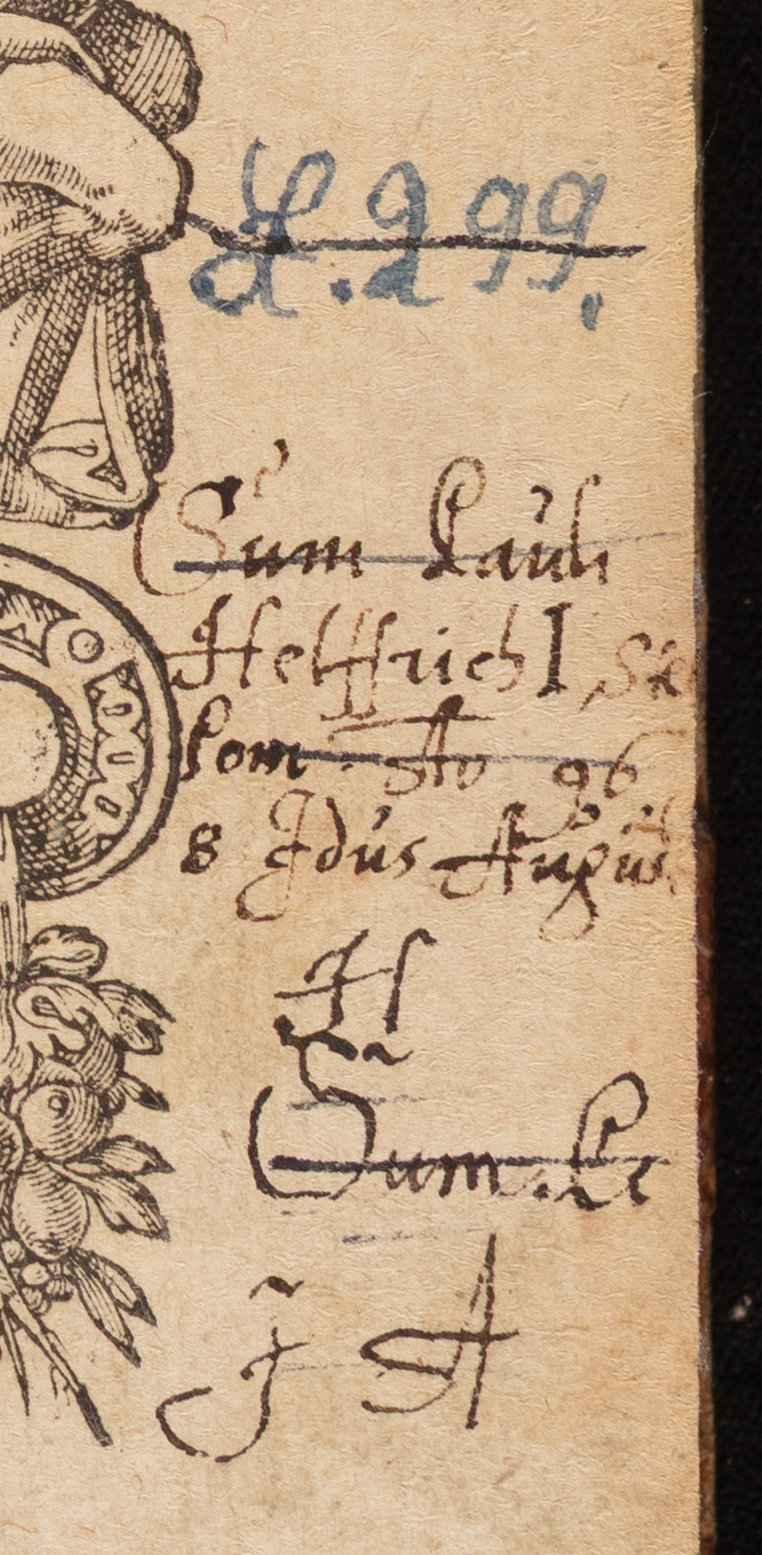 L. 299.
Sum Pauli
HelffrichI
Pom. Ao 96
8 Idus August
H
Sum Pe
J A